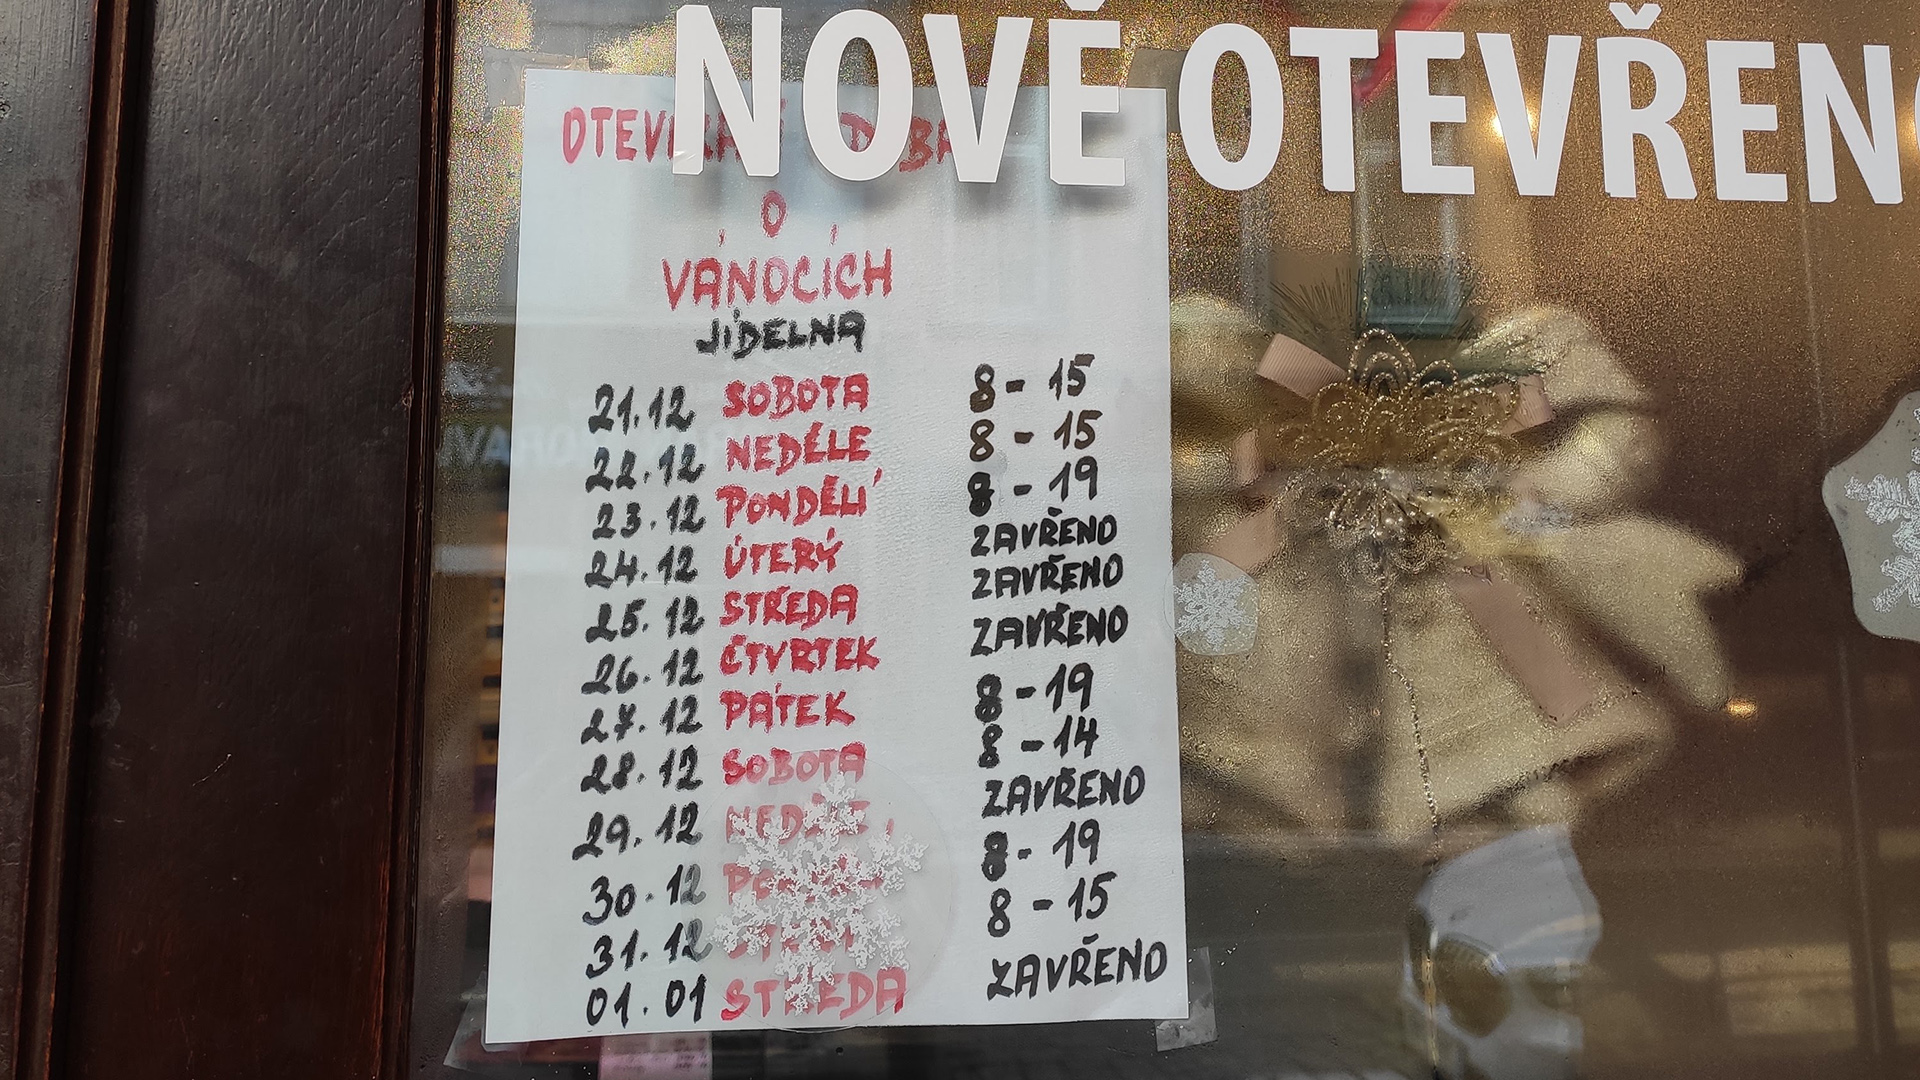 NOVĚ OTEVŘEN
OTEVÍRACÍ DOBA
O
VÁNOCÍCH
JÍDELNA
21.12 SOBOTA 8 - 15
22.12 NEDĚLE 8 - 15
23.12 PONDĚLÍ 8 - 19
24.12 ÚTERÝ ZAVŘENO
25.12 STŘEDA ZAVŘENO
26.12 ČTVRTEK ZAVŘENO
27.12 PÁTEK 8 - 19
28.12 SOBOTA 8 - 14
29.12 NEDĚLE ZAVŘENO
30.12 8 - 19
31.12 8 - 15
01.01 STŘEDA ZAVŘENO